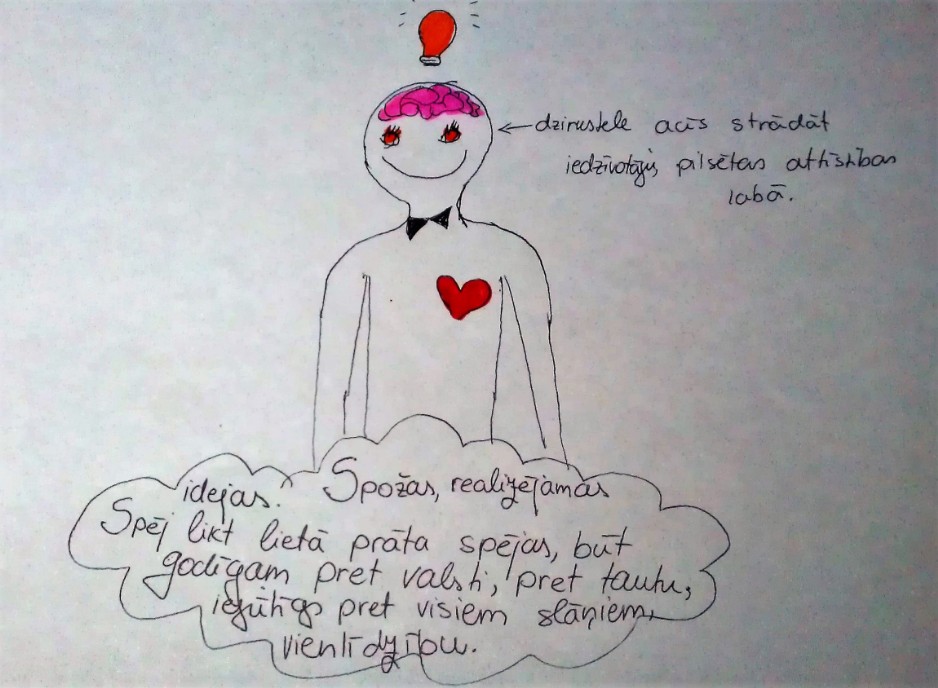 ← dzirustele acīs strādāt
iedzīvotājų, pilsētas attīstības
labā.
idejas. Spožas, realizējamās
Spēj likt lietā prāta spējas, būt
godīgam pret valsti, pret tautu,
iejūtīgs pret visiem slāņiem,
vienlīdzību.